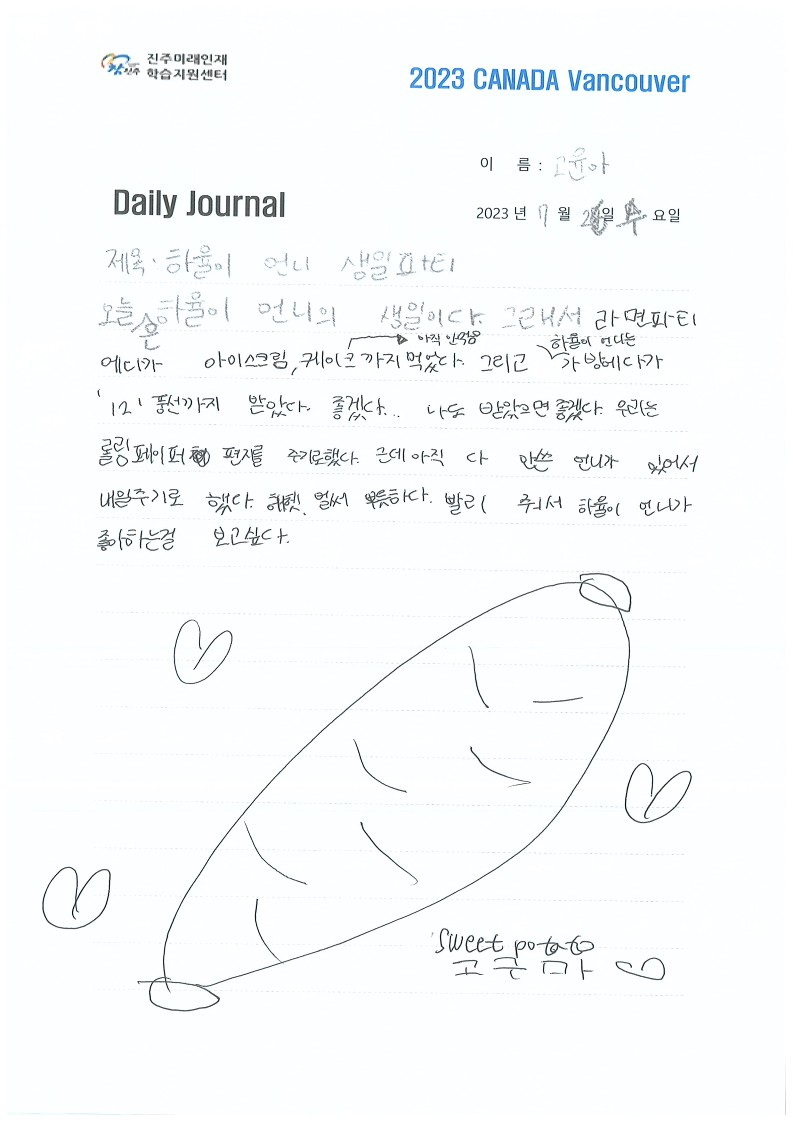 진주미래인재
학습지원센터
2023 CANADA Vancouver
이 름 : 고윤아
Daily Journal
2023 년 7 월 일 요일
제목. 하율이 언니 생일파티
오늘은 하율이 언니의 생일이다. 그래서 라면파티
아직 안먹음 하율이 언니는
에다가 아이스크림, 케이크까지 먹었다. 그리고 가방에다가
'12' 풍선까지 받았다. 좋겠다.. 나도 받았으면 좋겠다. 우리는
롤링페이퍼 편지를 주기로했다. 근데 아직 다 안쓴 언니가 있어서
내일주기로 했다. 헤헷. 벌써 뿌듯하다. 빨리 줘서 하율이 언니가
좋아하는걸 보고싶다.
sweet potato
고구마